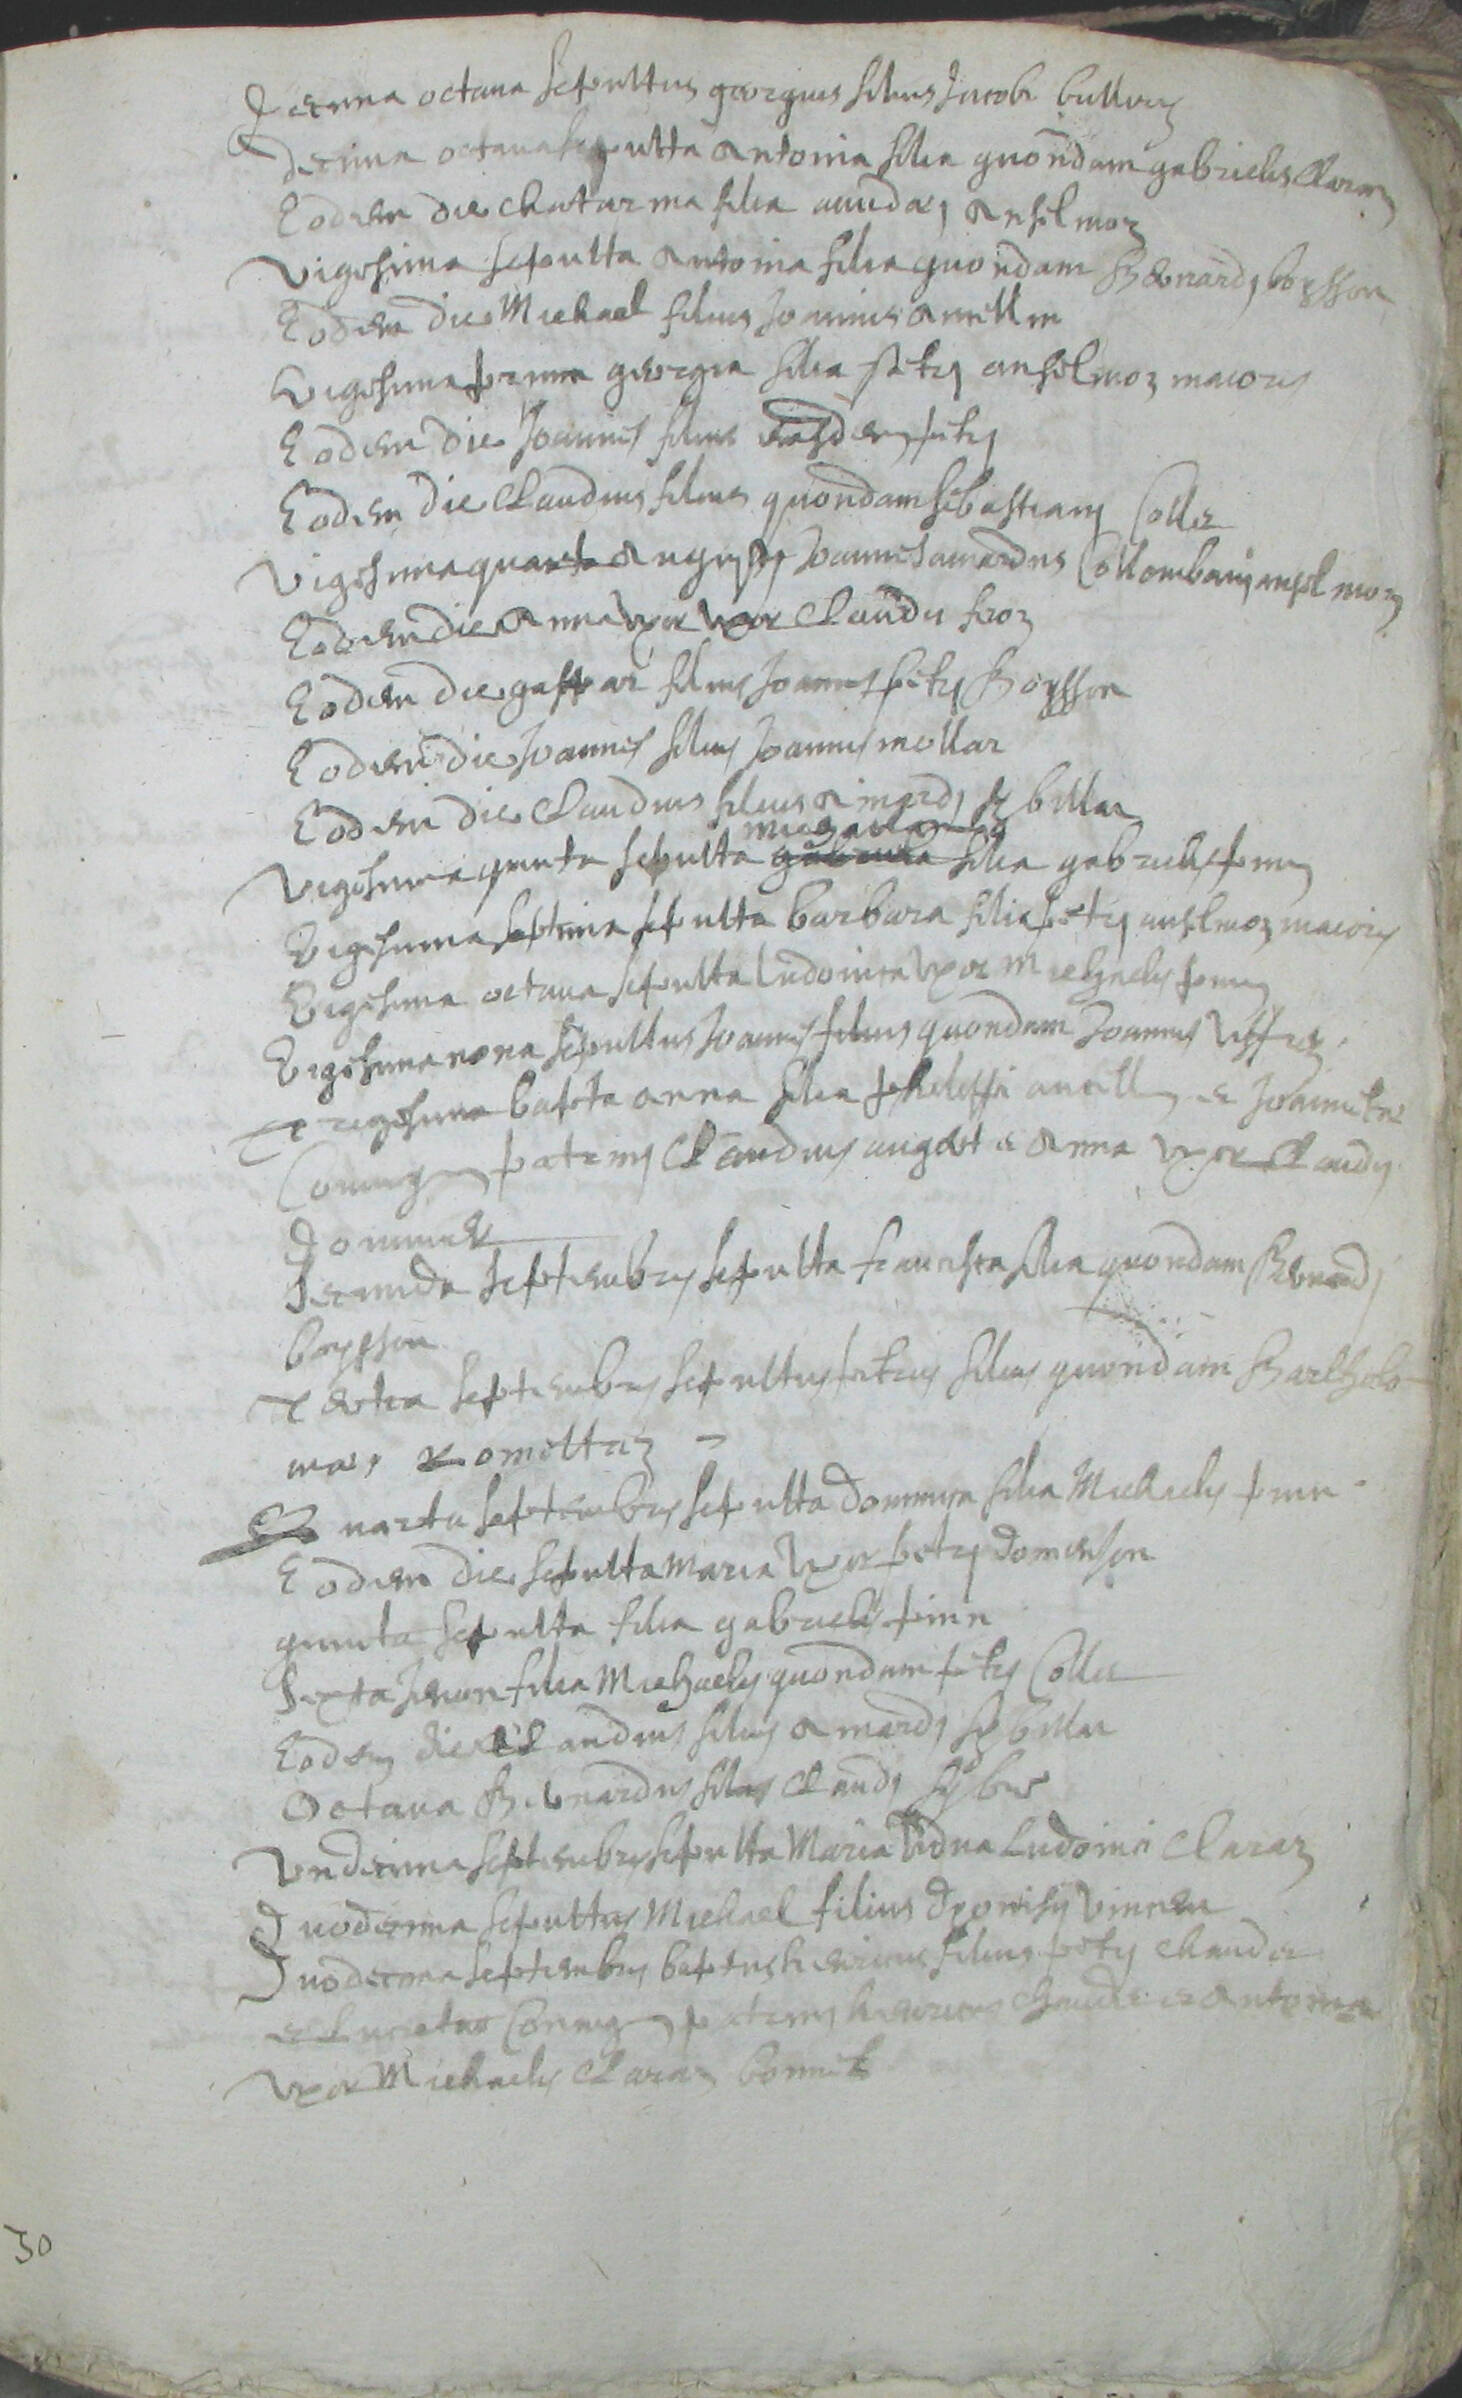 Decima octava sepultus georgius filius Jacobi bullioz
decima octava sepulta Antonia filia quondam gabrielis Claraz
Eodem die Chatarina filia Anselmoz
vigesima sepulta Antonia filia quondam Bernardj boysson
Eodem die Michael filius Joannis Anrilliu
vigesima prima georgia filia petrj anselmoz maioris
Eodem die Joannes filius eiusdem petrj
Eodem die Claudius filius quondam sebastianj Collez
vigesima quarta Augustj Joannes amardus Collombanj anselmoz
Eodem die Anna uxor uxor Claudii
Eodem die gaspar filius Joannis petrj Boysson
Eodem die Joannes filius Joannis mollar
Eodem die Claudius filius Aimardj sybillaz
vigesima quinta sepulta filia gabrielis pinu
vigesima septima sepulta barbara filia petrj anselmoz maioris
vigesima octava sepulta ludovica uxor Michaelis pinu
vigesima nona sepultus Joannes filius quondam Joannis
Trigesima bapta anna filia philippi & Joannete
Coniug patrinj Claudius & Anna uxor Claudij
Secunda septembris sepulta francisca filia quondam Bernardj
boysson
Tertia septembris sepultus petrus filius quondam Bartholo
mei Romettaz
Quarta septembris sepulta dominica filia Michaelis pinu
Eodem die sepulta Maria uxor petrj domenson
quinta sepulta filia gabrielis pinu
Sexta filia Michaelis quondam petrj Collez
Eodem die Claudius filius Amardj sybillaz
Octava Bernardus filius Claudj
undecima septembris sepulta Maria vidua Ludovici Claraz
Duodecima sepultus Michael filius dyonisij
Duodecima septembris baptus henricus filius petrj Chaudez
& Coniug patrinus henricus & Antonia
uxor Michaelis Claraz bonnet
30